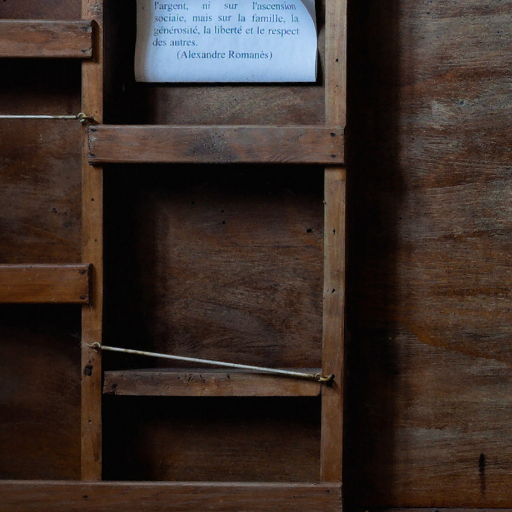 l'argent, ni sur l'ascension
sociale, mais sur la famille, la
générosité, la liberté et le respect
des autres.
(Alexandre Romanès)